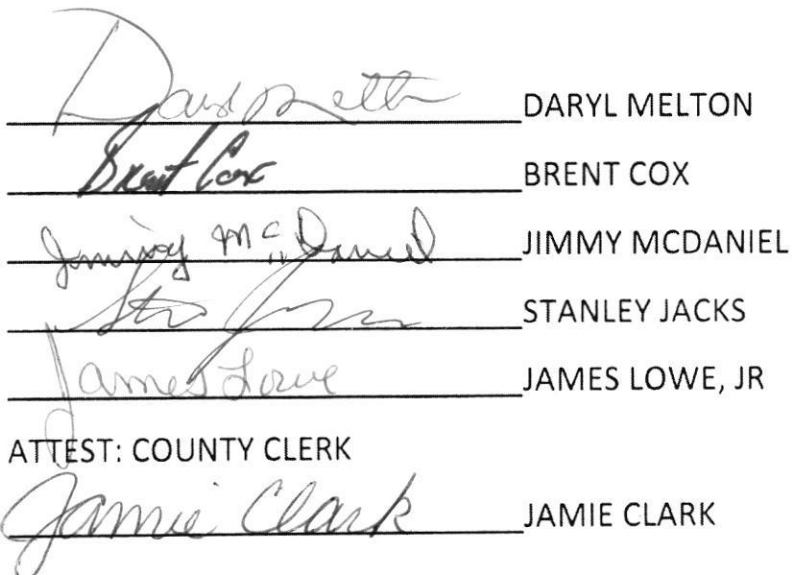 Daryl Melton DARYL MELTON
Brent Cox BRENT COX
Jimmy McDaniel JIMMY MCDANIEL
STANLEY JACKS
James Lowe JAMES LOWE, JR
ATTEST: COUNTY CLERK
Jamie Clark JAMIE CLARK